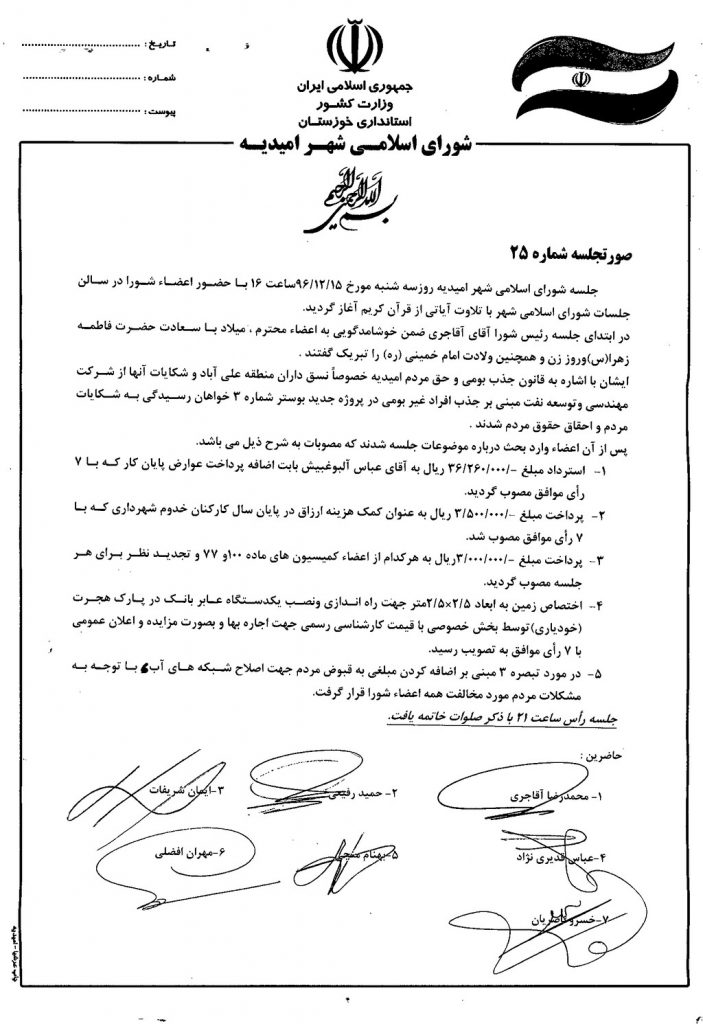 تاریخ :
شماره :
پیوست :
جمهوری اسلامی ایران
وزارت کشور
استانداری خوزستان
شورای اسلامی شهر امیدیه
بسم الله الرحمن الرحیم
صورتجلسه شماره ۲۵
جلسه شورای اسلامی شهر امیدیه روزسه شنبه مورخ ۹۶/۱۲/۱۵ساعت ۱۶ با حضور اعضاء شورا در سالن
جلسات شورای اسلامی شهر با تلاوت آیاتی از قرآن کریم آغاز گردید.
در ابتدای جلسه رئیس شورا آقای آقاجری ضمن خوشامدگویی به اعضاء محترم ، میلاد با سعادت حضرت فاطمه
زهرا(س)وروز زن و همچنین ولادت امام خمینی (ره) را تبریک گفتند .
ایشان با اشاره به قانون جذب بومی و حق مردم امیدیه خصوصاً نسق داران منطقه علی آباد و شکایات آنها از شرکت
مهندسی وتوسعه نفت مبنی بر جذب افراد غیر بومی در پروژه جدید بوستر شماره ۳ خواهان رسیدگی به شکایات
مردم و احقاق حقوق مردم شدند .
پس از آن اعضاء وارد بحث درباره موضوعات جلسه شدند که مصوبات به شرح ذیل می باشد.
۱- استرداد مبلغ -/۳۶/۲۶۰/۰۰۰ ریال به آقای عباس آلبوغبیش بابت اضافه پرداخت عوارض پایان کار که با ۷
رأی موافق مصوب گردید.
۲- پرداخت مبلغ -/۳/۵۰۰/۰۰۰ ریال به عنوان کمک هزینه ارزاق در پایان سال کارکنان خدوم شهرداری که با
۷ رأی موافق مصوب شد.
۳- پرداخت مبلغ -/۳/۰۰۰/۰۰۰ریال به هرکدام از اعضاء کمیسیون های ماده ۱۰۰و ۷۷ و تجدید نظر برای هر
جلسه مصوب گردید.
۴- اختصاص زمین به ابعاد ۲/۵×۲/۵متر جهت راه اندازی ونصب یکدستگاه عابر بانک در پارک هجرت
(خودیاری)توسط بخش خصوصی با قیمت کارشناسی رسمی جهت اجاره بها و بصورت مزایده و اعلان عمومی
با ۷ رأی موافق به تصویب رسید.
۵- در مورد تبصره ۳ مبنی بر اضافه کردن مبلغی به قبوض مردم جهت اصلاح شبکه های آب با توجه به
مشکلات مردم مورد مخالفت همه اعضاء شورا قرار گرفت.
جلسه رأس ساعت ۲۱ با ذکر صلوات خاتمه یافت.
حاضرین :
۱- محمدرضا آقاجری
۲- حمید رفیعی
۳-ایمان شریفات
۴-عباس قدیری نژاد
۵-بهنام
۶-مهران افضلی
۷-خسرو ناصریان